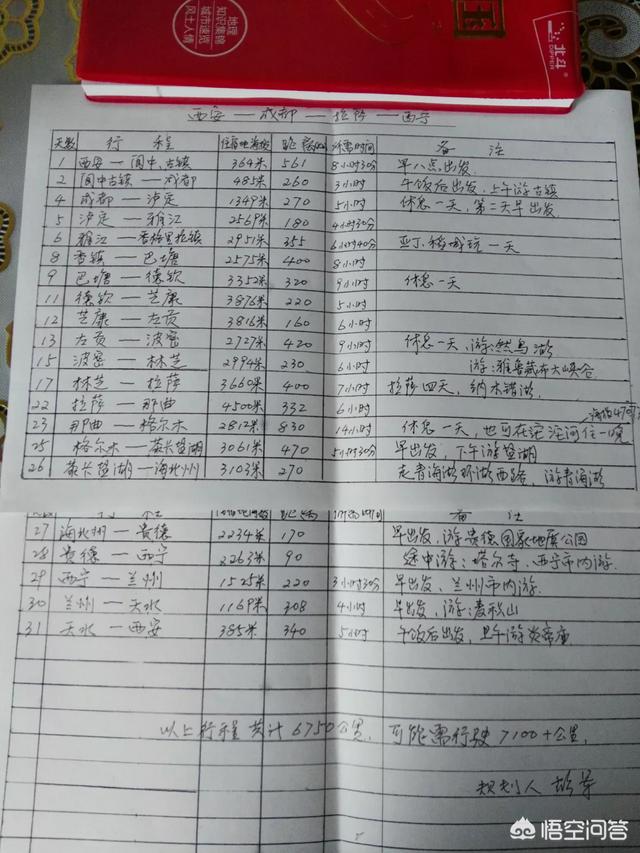 地理
知识集锦
城市速览
风土人情
北斗
西安—成都—拉萨—西宁
天数 行程 住宿地海拔 距离 所需时间 备注
1 西安—阆中古镇 364米 561 8小时30分 早八点出发
2 阆中古镇—成都 485米 260 3小时 午饭后出发,上午游古镇
4 成都—泸定 1349米 270 5小时 休息一天,第二天早出发
5 泸定—雅江 2569米 180 4小时30分
6 雅江—香格里拉镇 2951米 355 6小时40分 亚丁稻城玩一天
8 香镇—巴塘 2575米 400 8小时
9 巴塘—德钦 3352米 320 9小时 休息一天
11 德钦—芝康 3876米 220 5小时
12 芝康—左贡 3816米 160 6小时
13 左贡—波密 2727米 420 9小时 休息一天,游:然乌湖
15 波密—林芝 2994米 230 6小时 游:雅鲁藏布大峡谷
17 林芝—拉萨 3660米 400 7小时 拉萨四天,纳木错湖
22 拉萨—那曲 4500米 332 6小时
23 那曲—格尔木 2812米 830 14小时 休息一天,也可在沱沱河住一晚
25 格尔木—茶卡盐湖 3061米 470 5小时30分 早出发,下午游盐湖
26 茶卡盐湖—海北州 3103米 270 走青海湖环湖西路,游青海湖
行程 距离 备注
27 海北州—贵德 2234米 170 早出发,游贵德国家地质公园
28 贵德—西宁 2263米 90 途中游:塔尔寺,西宁市内游.
29 西宁—兰州 1525米 220 3小时30分 早出发、兰州市内游.
30 兰州—天水 1169米 308 4小时 早出发,游:麦积山
31 天水—西安 385米 340 5小时 午饭后出发,上午游炎帝庙
以上行程共计6750公里,可能需行驶7100+公里.
规划人
悟空问答